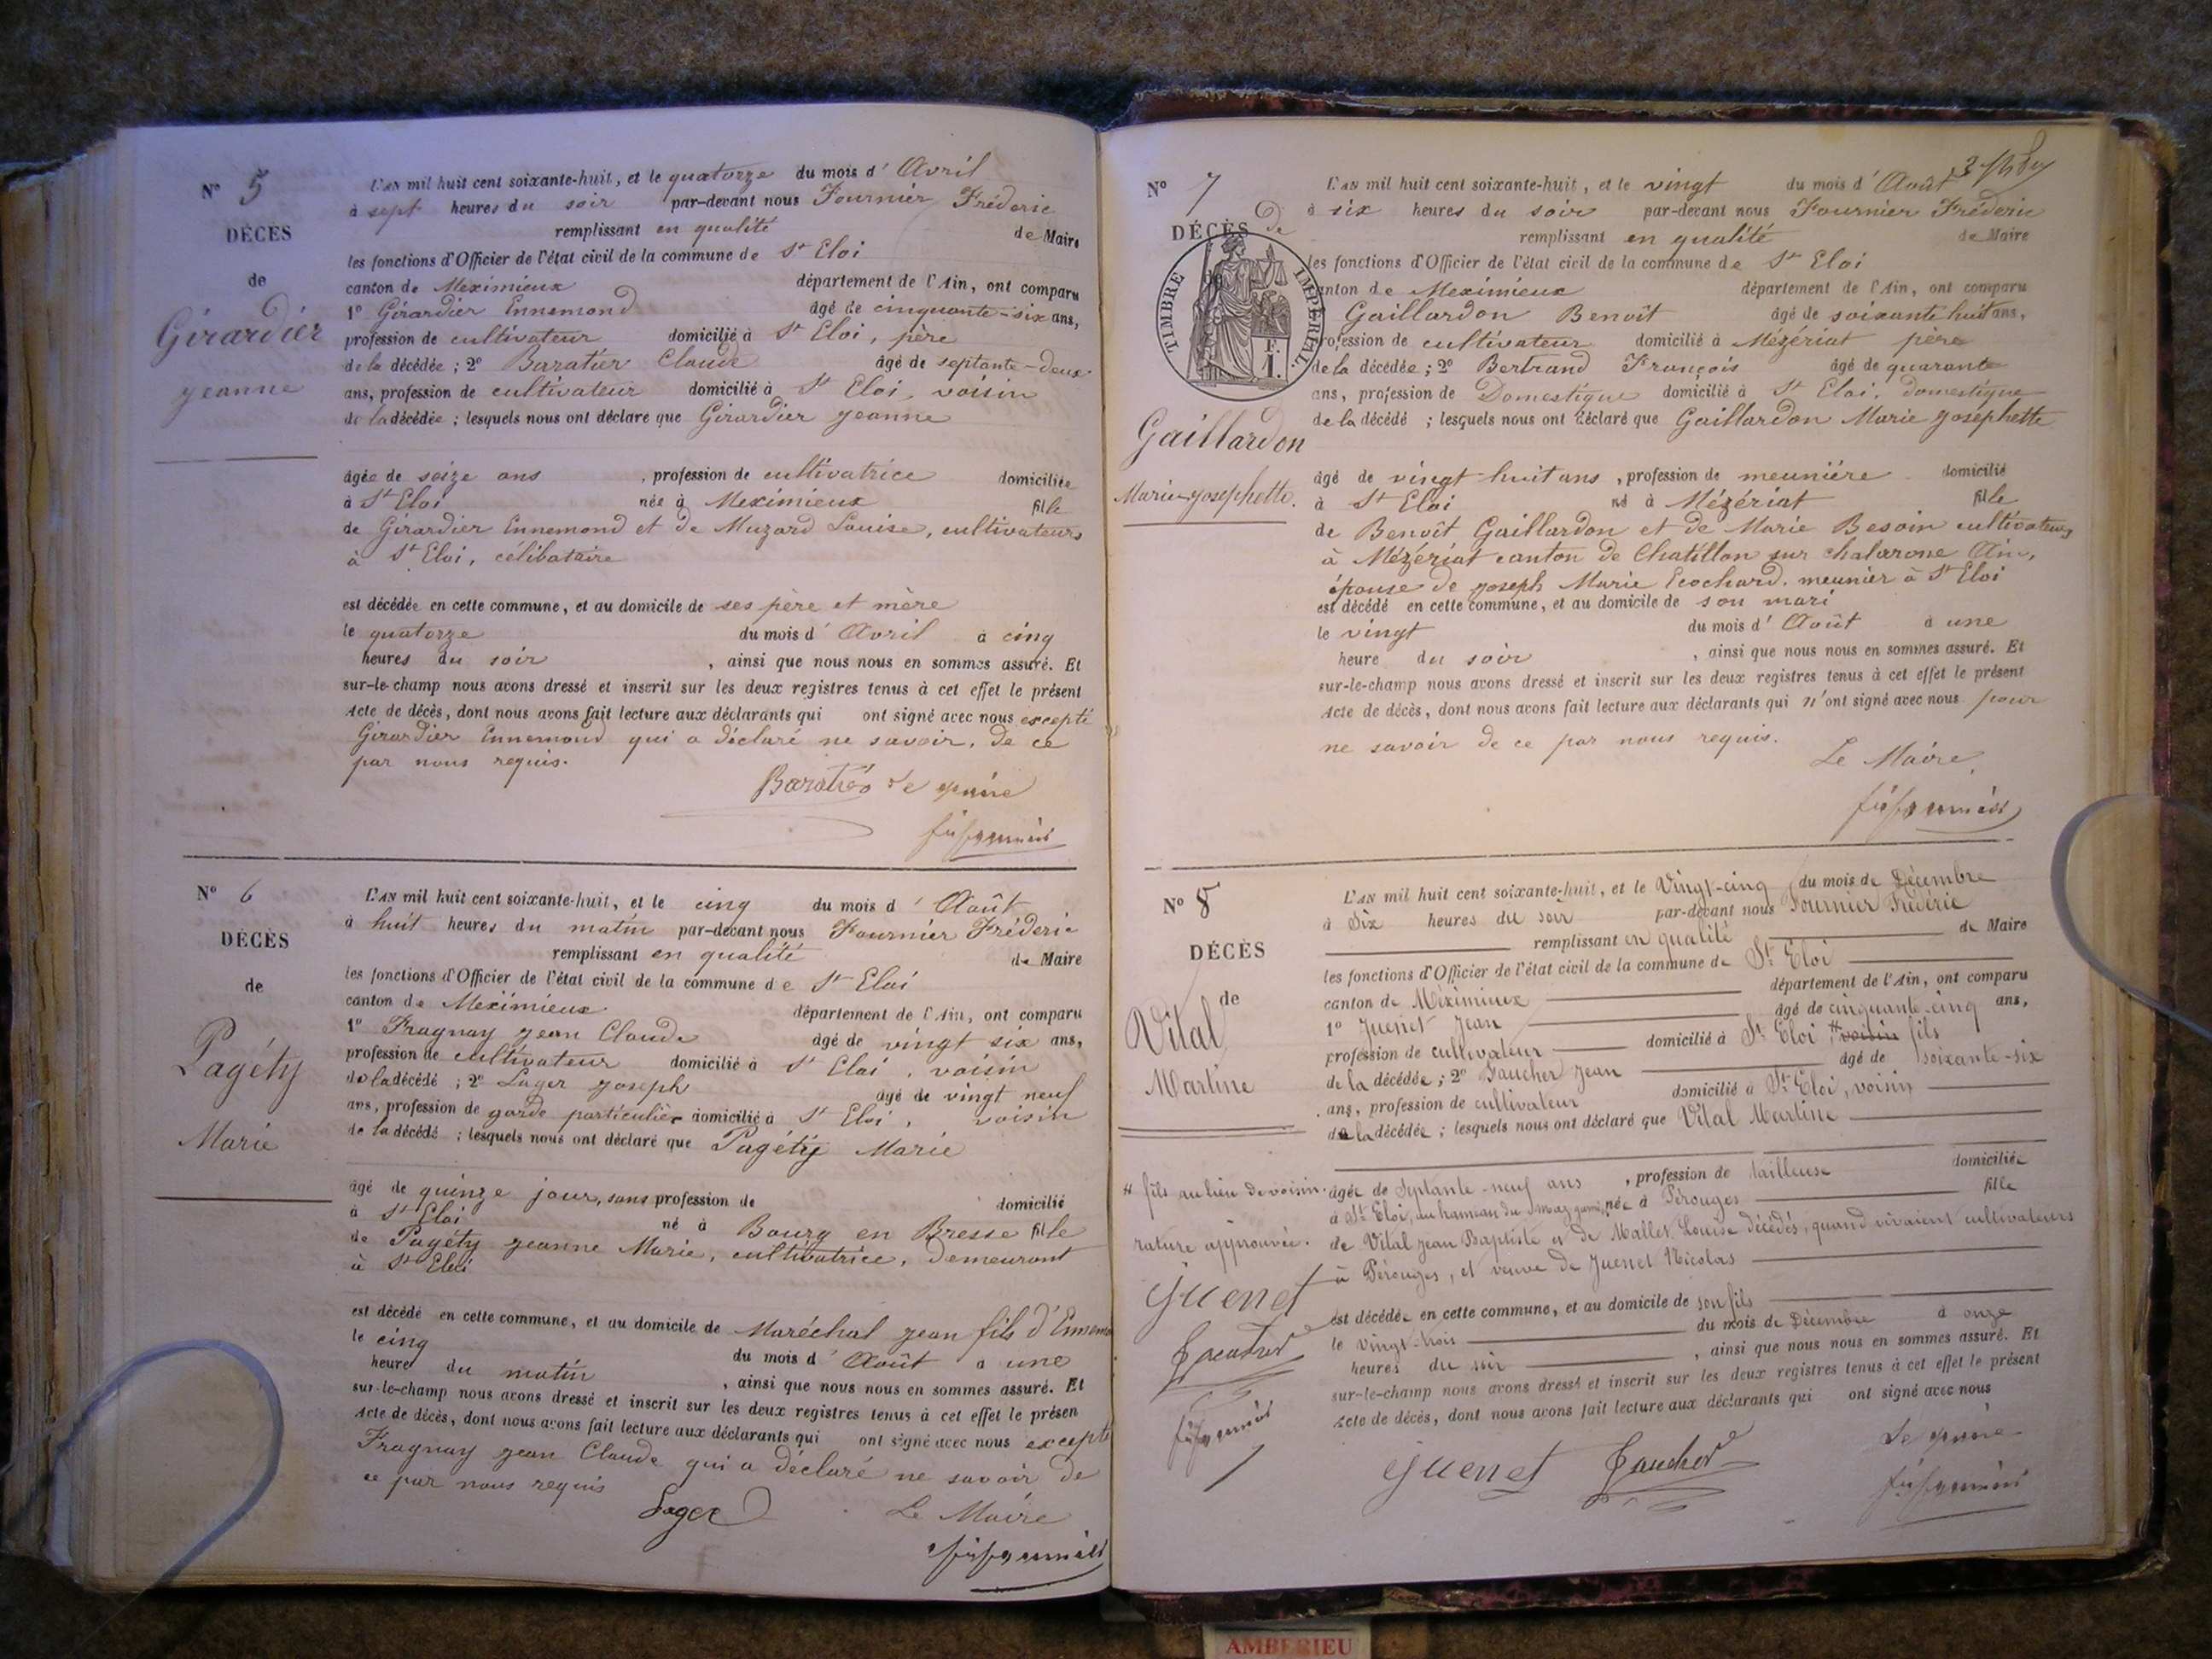 N° 5
DÉCÈS
de
Girardier
Jeanne
L'AN mil huit cent soixante-huit, et le quatorze du mois d' Avril
à sept heures du soir par-devant nous Fournier Fréderic
remplissant en qualité de Maire
les fonctions d'Officier de l'état civil de la commune de St Eloi
canton de Meximieux département de l'Ain, ont comparu
1° Girardier Ennemond âgé de cinquante-six ans,
profession de cultivateur domicilié à St Eloi, père
de la décédée ; 2° Baratier Claude âgé de septante-deux
ans, profession de cultivateur domicilié à St Eloi, voisin
de la décédée ; lesquels nous ont déclaré que Girardier Jeanne
âgée de seize ans , profession de cultivatrice domiciliée
à St Eloi née à Meximieux fille
de Girardier Ennemond et de Muzard Louise, cultivateurs
à St Eloi, célibataire
est décédée en cette commune, et au domicile de ses père et mère
le quatorze du mois d' Avril à cinq
heures du soir , ainsi que nous nous en sommes assuré. Et
sur-le-champ nous avons dressé et inscrit sur les deux registres tenus à cet effet le présent
Acte de décès, dont nous avons fait lecture aux déclarants qui ont signé avec nous excepté
Girardier Ennemond qui a déclaré ne savoir, de ce
par nous requis.
Le Maire
N° 6
DÉCÈS
de
Pagéty
Marie
L'AN mil huit cent soixante-huit, et le cinq du mois d' Août
à huit heures du matin par-devant nous Fournier Fréderic
remplissant en qualité de Maire
les fonctions d'Officier de l'état civil de la commune de St Eloi
canton de Meximieux département de l'Ain, ont comparu
1° Fragnay Jean Claude âgé de vingt six ans,
profession de cultivateur domicilié à St Eloi, voisin
de la décédé ; 2° Lager Joseph âgé de vingt neuf
ans, profession de garde particulier domicilié à St Eloi, voisin
de la décédé ; lesquels nous ont déclaré que Pagéty Marie
âgé de quinze jour, sans profession de domicilié
à St Eloi né à Bourg en Bresse fille
de Pagéty Jeanne Marie, cultivatrice, demeurant
à St Eloi
est décédé en cette commune, et au domicile de Maréchal Jean fils d'Ennemo
le cinq du mois d' Août à une
heure du matin , ainsi que nous nous en sommes assuré. Et
sur-le-champ nous avons dressé et inscrit sur les deux registres tenus à cet effet le présen
Acte de décès, dont nous avons fait lecture aux déclarants qui ont signé avec nous excepté
Fragnay Jean Claude qui a déclaré ne savoir de
ce par nous requis
Lager Le Maire
N° 7
DÉCÈS
de
TIMBRE IMPÉRIAL
F.
1.
Gaillardon
Marie Josephette.
L'AN mil huit cent soixante-huit, et le vingt du mois d' Août
à six heures du soir par-devant nous Fournier Fréderic
remplissant en qualité de Maire
les fonctions d'Officier de l'état civil de la commune de St Eloi
canton de Meximieux département de l'Ain, ont comparu
Gaillardon Benoît âgé de soixante huit ans,
profession de cultivateur domicilié à Mézériat père
de la décédée ; 2° Bertrand François âgé de quarante
ans, profession de Domestique domicilié à St Eloi, domestique
de la décédé ; lesquels nous ont déclaré que Gaillardon Marie Josephette
âgé de vingt huit ans , profession de meunière domicilié
à St Eloi né à Mézériat fille
de Benoît Gaillardon et de Marie Besoin cultivateurs
à Mézériat canton de Chatillon sur chalarone Ain,
épouse de Joseph Marie Ecochard, meunier à St Eloi
est décédé en cette commune, et au domicile de son mari
le vingt du mois d' Août à une
heure du soir , ainsi que nous nous en sommes assuré. Et
sur-le-champ nous avons dressé et inscrit sur les deux registres tenus à cet effet le présent
Acte de décès, dont nous avons fait lecture aux déclarants qui n'ont signé avec nous pour
ne savoir de ce par nous requis.
Le Maire
N° 8
DÉCÈS
de
Vital
Martine
L'AN mil huit cent soixante-huit, et le Vingt-cinq du mois de Décembre
à Six heures du soir par-devant nous Fournier Frédéric
remplissant en qualité de Maire
les fonctions d'Officier de l'état civil de la commune de St. Éloi
canton de Méximieux département de l'Ain, ont comparu
1° Juenet Jean âgé de cinquante-cinq ans,
profession de cultivateur domicilié à St. Éloi, # voisin fils
de la décédée ; 2° Faucher Jean âgé de soixante-six
ans, profession de cultivateur domicilié à St. Éloi, voisin
de la décédée ; lesquels nous ont déclaré que Vital Martine
âgée de Septante-neuf ans , profession de tailleuse domiciliée
à St. Eloi, au hameau du née à Pérouges fille
de Vital Jean Baptiste et de Mallet Louise décédés, quand vivaient cultivateurs
à Pérouges, et veuve de Juenet Nicolas
est décédée en cette commune, et au domicile de son fils
le vingt-trois du mois de Décembre à onze
heures du soir , ainsi que nous nous en sommes assuré. Et
sur-le-champ nous avons dressé et inscrit sur les deux registres tenus à cet effet le présent
Acte de décès, dont nous avons fait lecture aux déclarants qui ont signé avec nous
# fils au lieu de voisin.
rature approuvée.
Juenet
Juenet Faucher Le Maire
AMBERIEU